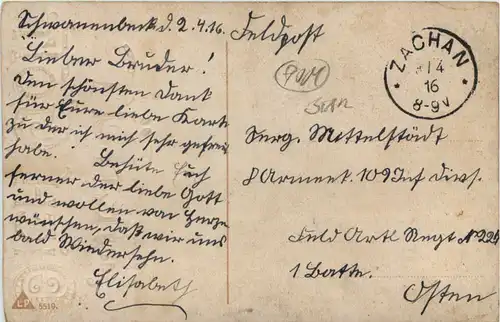 Schwanenbeck d. 2.4.16.
Feldpost
Lieber Bruder!
Den schönsten Dank
für Eure liebe Karte
zu der ich mich sehr gefreut
habe. Behüte Euch
ferner der liebe Gott
und wollen von Herzen
wünschen, daß wir uns
bald Wiedersehn.
Elisabeth
ZACHAN
4
16
8-9V
Serg. Mittelstädt
8 Armeek. 109 Inf Divis.
Feld Artl Regt N 225
1 Batte.
Osten
5519.